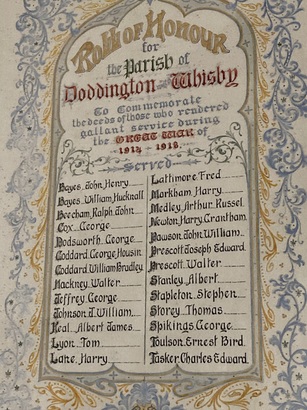 Roll of Honour
for
the Parish of
Doddington and Whisby
To Commemorate
the deeds of those who rendered
gallant service during
the GREAT WAR of
1914 - 1918.
Served
Bayes, John, Henry
Bayes, William, Hucknall
Beecham, Ralph, John
Cox, George
Dodsworth, George
Goddard, George, Housin
Goddard, William, Bradley
Hackney, Walter
Jeffrey, George
Johnson, J. William
Keal, Albert James
Lyon, Tom
Lane, Harry
Lattimore, Fred
Markham, Harry
Medley, Arthur, Russel
Newton, Harry, Grantham
Pawson, John, William
Prescott, Joseph Edward
Prescott, Walter
Stanley, Albert
Stapleton, Stephen
Storey, Thomas
Spikings, George
Toulson, Ernest Bird
Tasker, Charles Edward